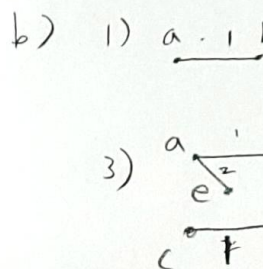 b) 1) a . 1
3) a 1
2
e
c